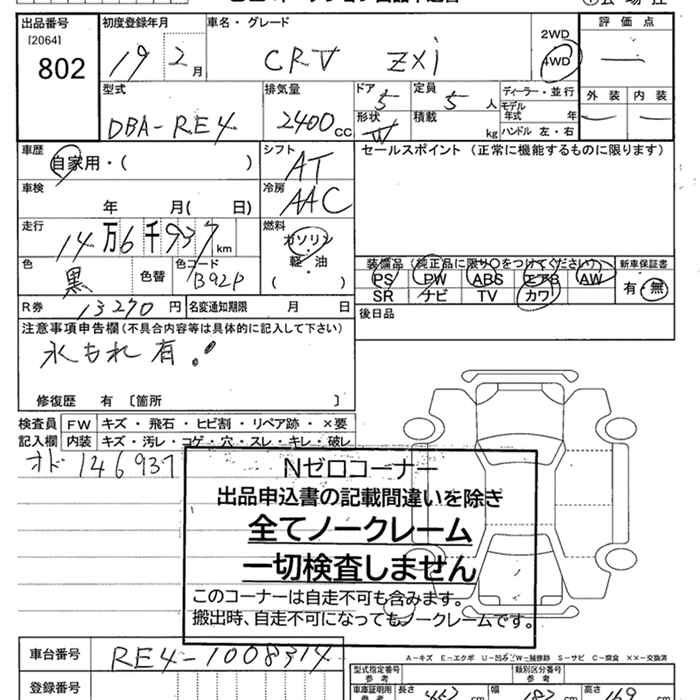 出品番号 初度登録年月 車名・グレード 評価点
[2064]
802 19 2月 CRV ZXi 2WD 4WD —
型式 排気量 ドア 定員 ディーラー・並行 外装 内装
DBA-RE4 2400cc 5 5人 モデル年式 年
形状 W 積載 kg ハンドル 左・右
車歴 シフト セールスポイント(正常に機能するものに限ります)
自家用・( ) AT
車検 冷房
年 月( 日) AAC
走行 燃料
14万6千937km ガソリン・軽・油
色 色替 色コード ( ) 装備品(純正品に限り○をつけてください) 新車保証書
黒 B92P PS PW ABS エアB AW 有・無
SR ナビ TV カワ
R券 13270円 名変通知期限 月 日 後日品
注意事項申告欄(不具合内容等は具体的に記入して下さい)
水もれ有。!
修復歴 有 [箇所 ]
検査員記入欄 FW キズ・飛石・ヒビ割・リペア跡・×要
内装 キズ・汚レ・コゲ・穴・スレ・キレ・破レ
オド 146937
Nゼロコーナー
出品申込書の記載間違いを除き
全てノークレーム
一切検査しません
このコーナーは自走不可も含みます。
搬出時、自走不可になってもノークレームです。
車台番号 RE4-1008314
A-キズ E-エクボ U-凹み W-補修跡 S-サビ C-腐食 ××-交換済
登録番号 型式指定番号 参考 類別区分番号 参考
車庫証明用 参考 長さ cm 幅 cm 高さ cm